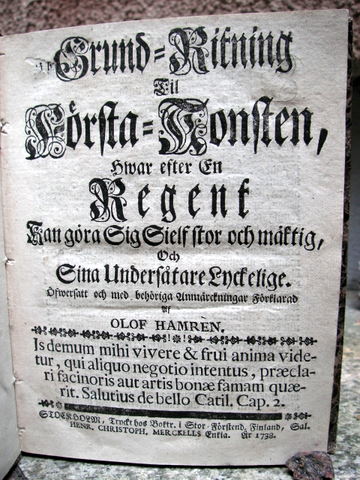 Grund-Ritning
Til
Första-Konsten,
Hwar efter En
Regent
Kan göra Sig Sielf stor och mäktig,
Och
Sina Undersåtare Lyckelige.
Öfwersatt och med behöriga Anmärckningar Förklarad
Af
OLOF HAMRÈN.
Is demum mihi vivere & frui anima vide-
tur, qui aliquo negotio intentus, præcla-
ri facinoris aut artis bonæ famam quæ-
rit. Salutius de bello Catil. Cap. 2.
STOCKHOLM, Tryckt hos Boktr. i Stor-Förstend. Finland, Sal.
HENR. CHRISTOPH. MERCKELLS Enkia. År 1738.